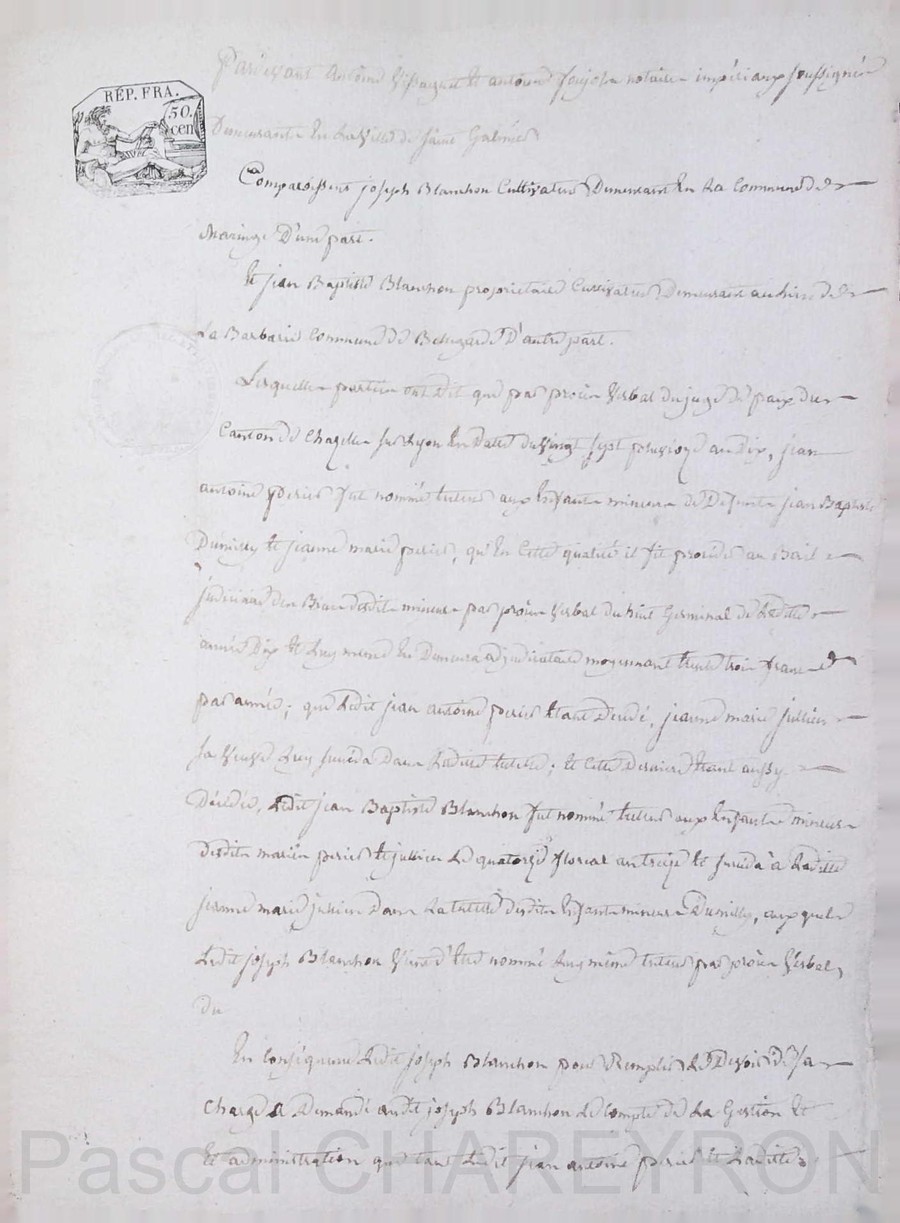 RÉP. FRA.
50. cen
Pardevant antoine et antoine notaires impériaux soussignés
Demeurants En La Ville de saint Galmier
Comparoissent joseph Blanchon Cultivateur Demeurant En La Commune de
Maringe D'une part.
Et jean Baptiste Blanchon propriétaire Cultivateur Demeurant au lieu de
La Barbarie Commune de Bellegarde D'autre part.
Lesquelles parties ont dit que par procès Verbal du juge de paix du
Canton de Chazelles sur Lyon En Date du Vingt sept pluviôze an Dix, jean
antoine perier fut nommé tuteur aux Enfants mineurs de Defunts jean Baptiste
Dumilly et jeanne marie perier, qu'En Cette qualité il fit procéder au Bail
judiciaire des Biens desdits mineurs par procès Verbal du huit Germinal de Ladite
année Dix et Luy même En Demeura adjudicataire moyennant trente trois francs
par année; que Ledit jean antoine perier étant Décédé, jeanne marie jullien
sa Veuve Luy succéda Dans Ladite tutelle; et Cette Derniere étant aussy
Décédée, Ledit jean Baptiste Blanchon fut nommé tuteur aux Enfants mineurs
Desdits mariés perier et jullien Le quatorze floreal an treize et succéda à Ladite
jeanne marie jullien Dans La tutelle desdits Enfants mineurs Dumilly, auxquels
Ledit joseph Blanchon Vient d'Etre nommé Luy même tuteur par procès Verbal
du
En Conséquence Ledit joseph Blanchon pour Remplir Le Devoir de sa
Charge a Demandé audit joseph Blanchon Le Compte de La Gestion Et
Et administration que tant Ledit jean antoine perier et Ladite
Pascal CHAREYRON